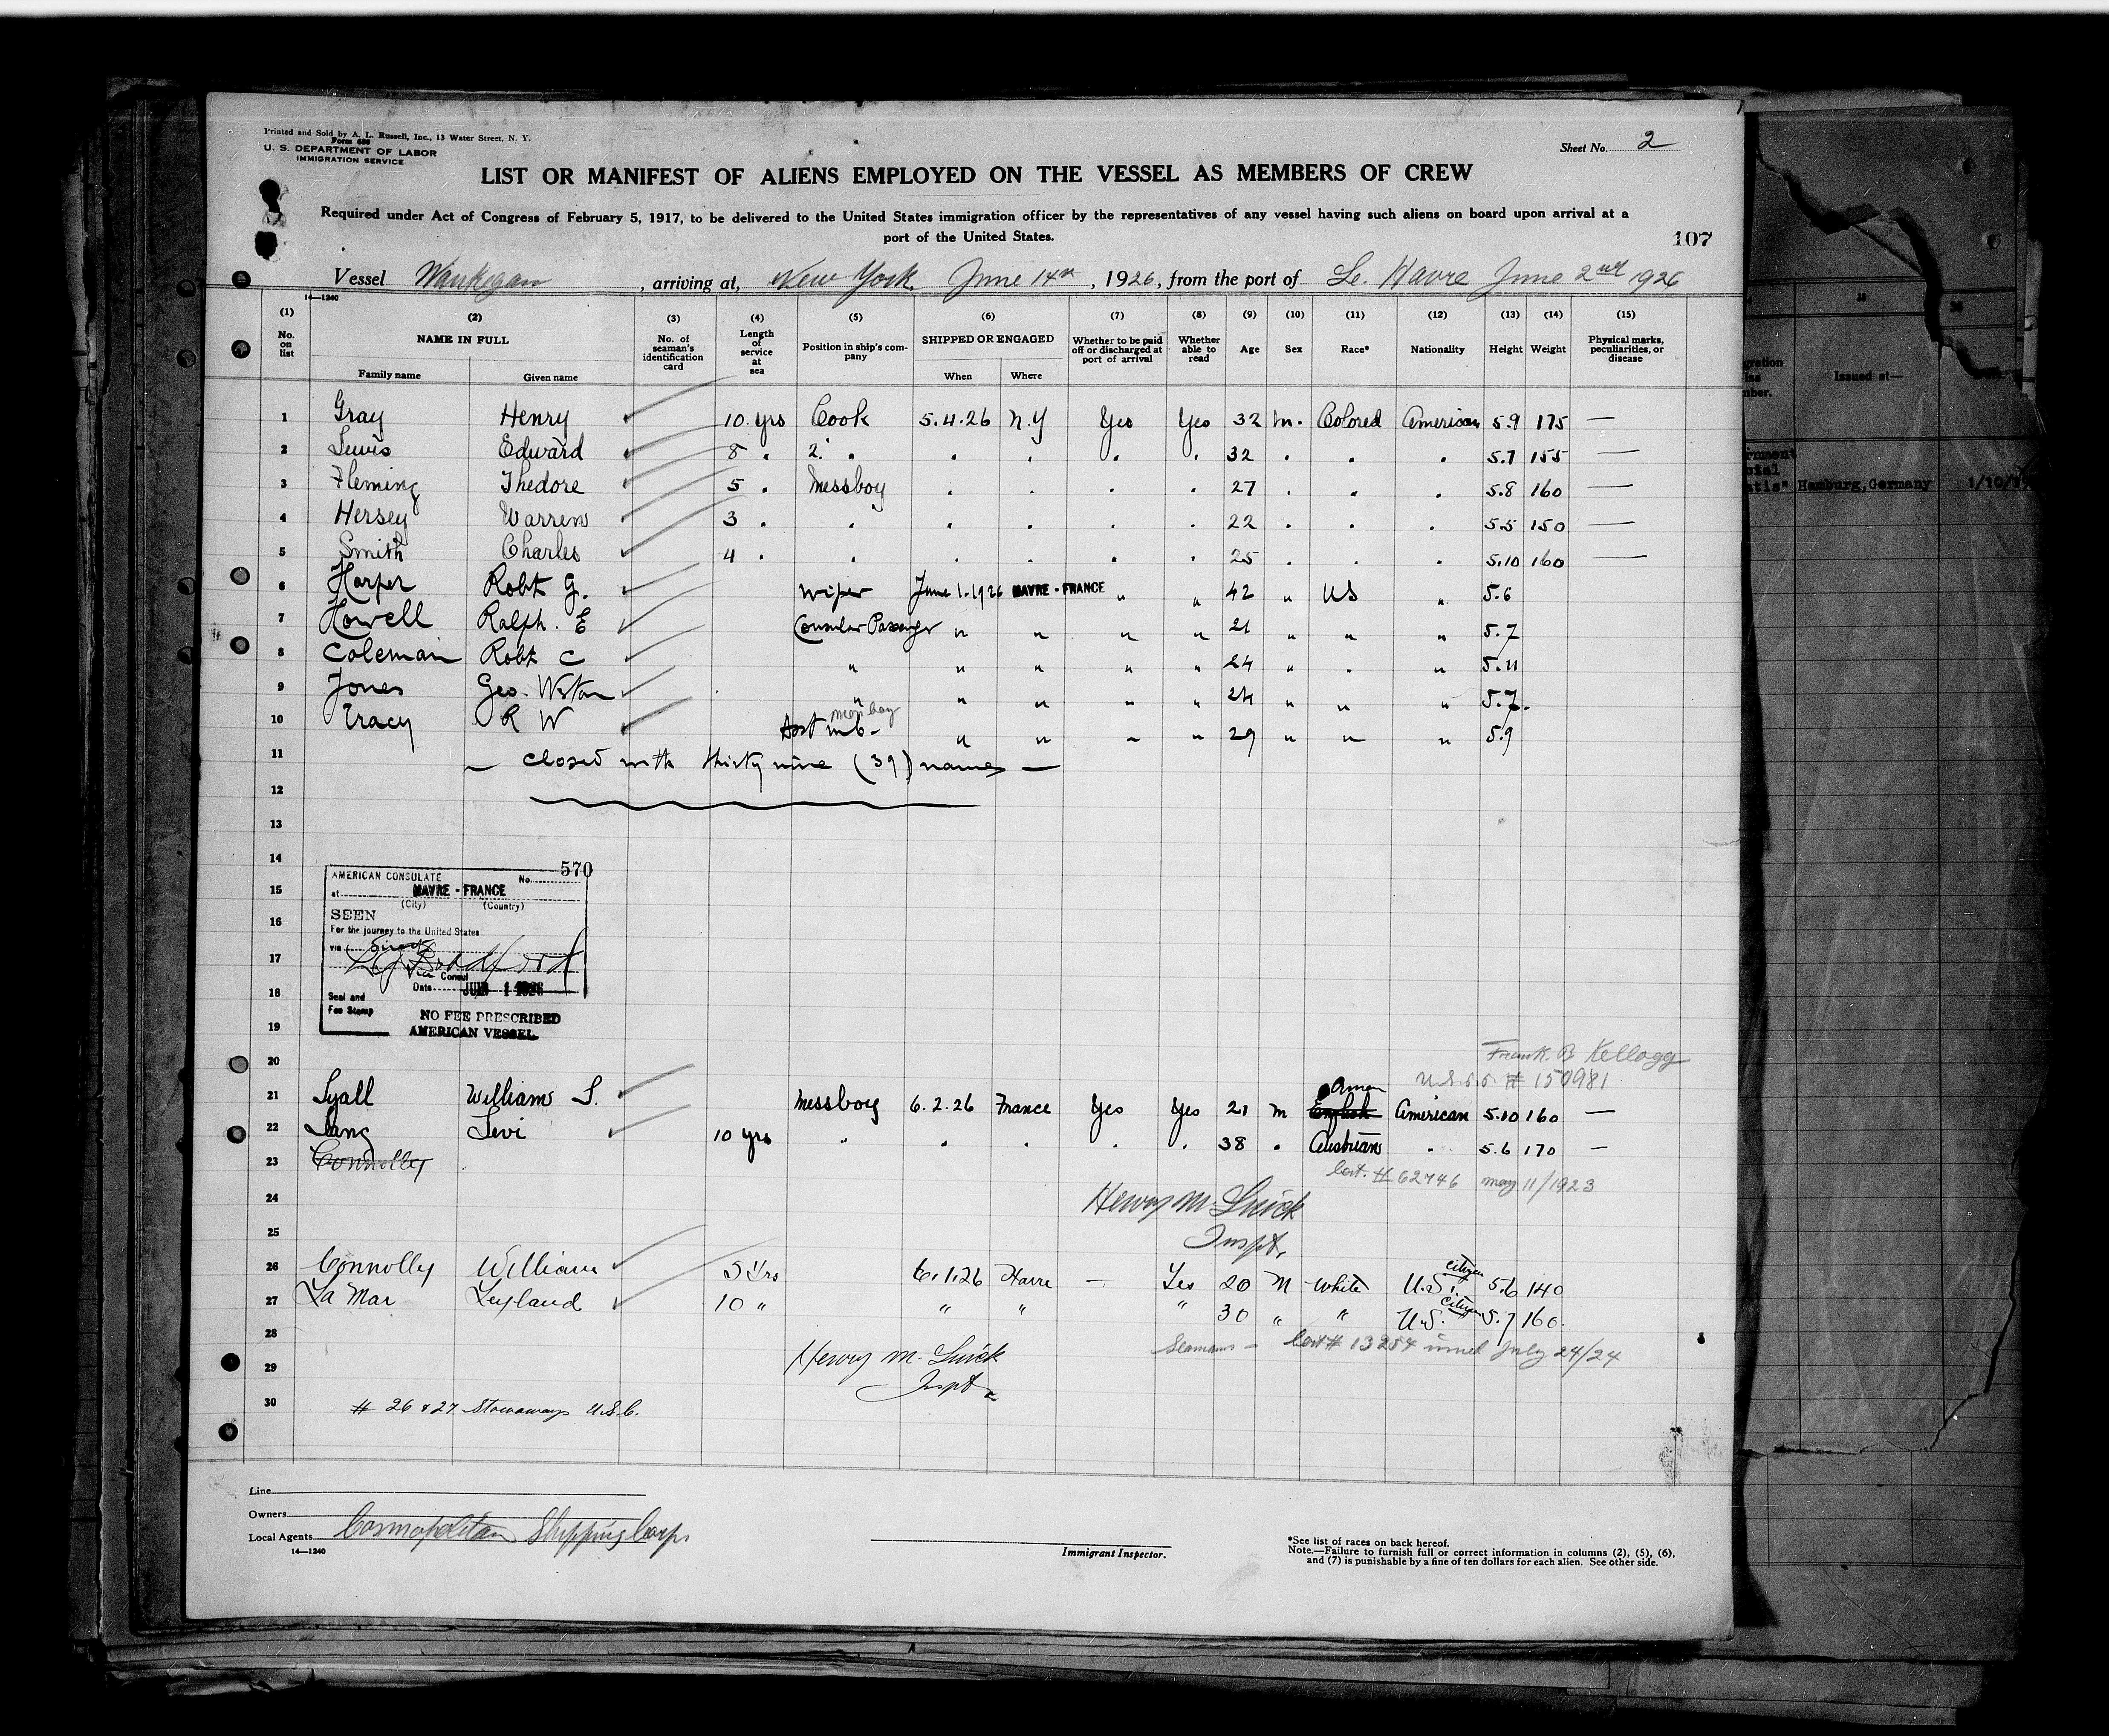 Printed and Sold by A. L. Russell, Inc., 13 Water Street, N. Y.
Form 680
U. S. DEPARTMENT OF LABOR
IMMIGRATION SERVICE
Sheet No. 2
LIST OR MANIFEST OF ALIENS EMPLOYED ON THE VESSEL AS MEMBERS OF CREW
Required under Act of Congress of February 5, 1917, to be delivered to the United States immigration officer by the representatives of any vessel having such aliens on board upon arrival at a
port of the United States.
107
Vessel Waukegan, arriving at, New York, June 14th, 1926, from the port of Le. Havre June 2nd 1926
14—1240
(1) (2) (3) (4) (5) (6) (7) (8) (9) (10) (11) (12) (13) (14) (15)
No. on list NAME IN FULL No. of seaman's identification card Length of service at sea Position in ship's company SHIPPED OR ENGAGED Whether to be paid off or discharged at port of arrival Whether able to read Age Sex Race* Nationality Height Weight Physical marks, peculiarities, or disease
Family name Given name When Where
1 Gray Henry ✓ 10 yrs Cook 5.4.26 N.Y Yes Yes 32 M. Colored American 5.9 175 —
2 Lewis Edward ✓ 8 " 2" " " " " " 32 " " " 5.7 155 —
3 Fleming Thedore ✓ 5 " Messboy " " " " 27 " " " 5.8 160 —
4 Hersey Warren ✓ 3 " " " " " " 22 " " " 5.5 150 —
5 Smith Charles ✓ 4 " " " " " " 25 " " " 5.10 160 —
6 Harper Robt G. ✓ Wiper June 1.1926 HAVRE - FRANCE " " 42 " US " 5.6
7 Howell Ralph. E ✓ Consular Passenger " " " " 21 " " " 5.7
8 Coleman Robt C ✓ " " " " " 24 " " " 5.11
9 Jones Geo. Wston ✓ " " " " " 24 " " " 5.7.
10 Tracy R W ✓ Asst mb- mess boy " " " " 29 " " " 5.9
11 — closed with thirty nine (39) names —
12
13
14
AMERICAN CONSULATE No. 570
15
at HAVRE - FRANCE
(City) (Country)
16
SEEN
For the journey to the United States
17
via Direct
Vice Consul
18
Date JUIN 1 1926
Seal and
Fee Stamp
NO FEE PRESCRIBED
19
AMERICAN VESSEL
20
Frank. B Kellogg
U.S.S.S. # 150981
21 Lyall William S. ✓ Messboy 6.2.26 France Yes Yes 21 M English Amer American 5.10 160 —
22 Lang Levi ✓ 10 yrs " " " " " 38 " Austrian " 5.6 170 —
23 Connolley
Cert. # 62746 may 11/1923
24
Henry M. Quick
25
Inspt.
26 Connolly William ✓ 5 Yrs 6.1.26 Havre — Yes 20 M White U.S. citizen 5.6 140
27 La Mar Leyland ✓ 10 " " " " 30 " " U.S. citizen 5.7 160.
28
Seamans — Cert # 13254 issued July 24/24
29
Henry M. Quick
Inspt.
30
# 26 & 27 Stowaways U.S.C.
Line
Owners
Local Agents Cosmopolitan Shipping Corp.
14—1240
Immigrant Inspector.
*See list of races on back hereof.
Note.—Failure to furnish full or correct information in columns (2), (5), (6),
and (7) is punishable by a fine of ten dollars for each alien. See other side.
Issued at—
Hamburg, Germany